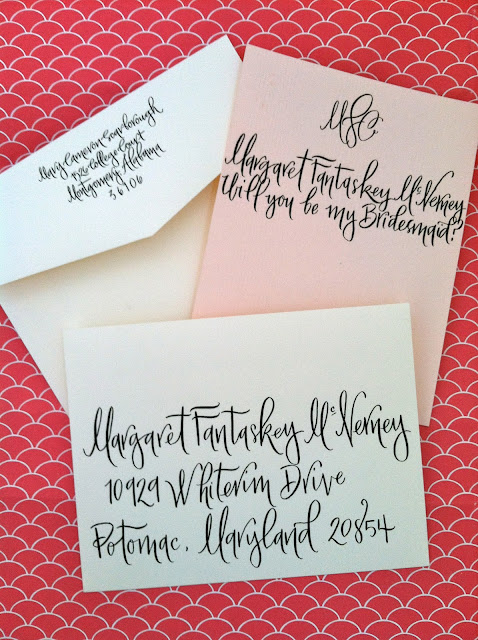 Mary Cameron Scarborough
College Court
Montgomery, Alabama
36106
MSC.
Margaret Fantaskey McNerney
Will you be my Bridesmaid?
Margaret Fantaskey McNerney
10929 Whiterim Drive
Potomac, Maryland 20854